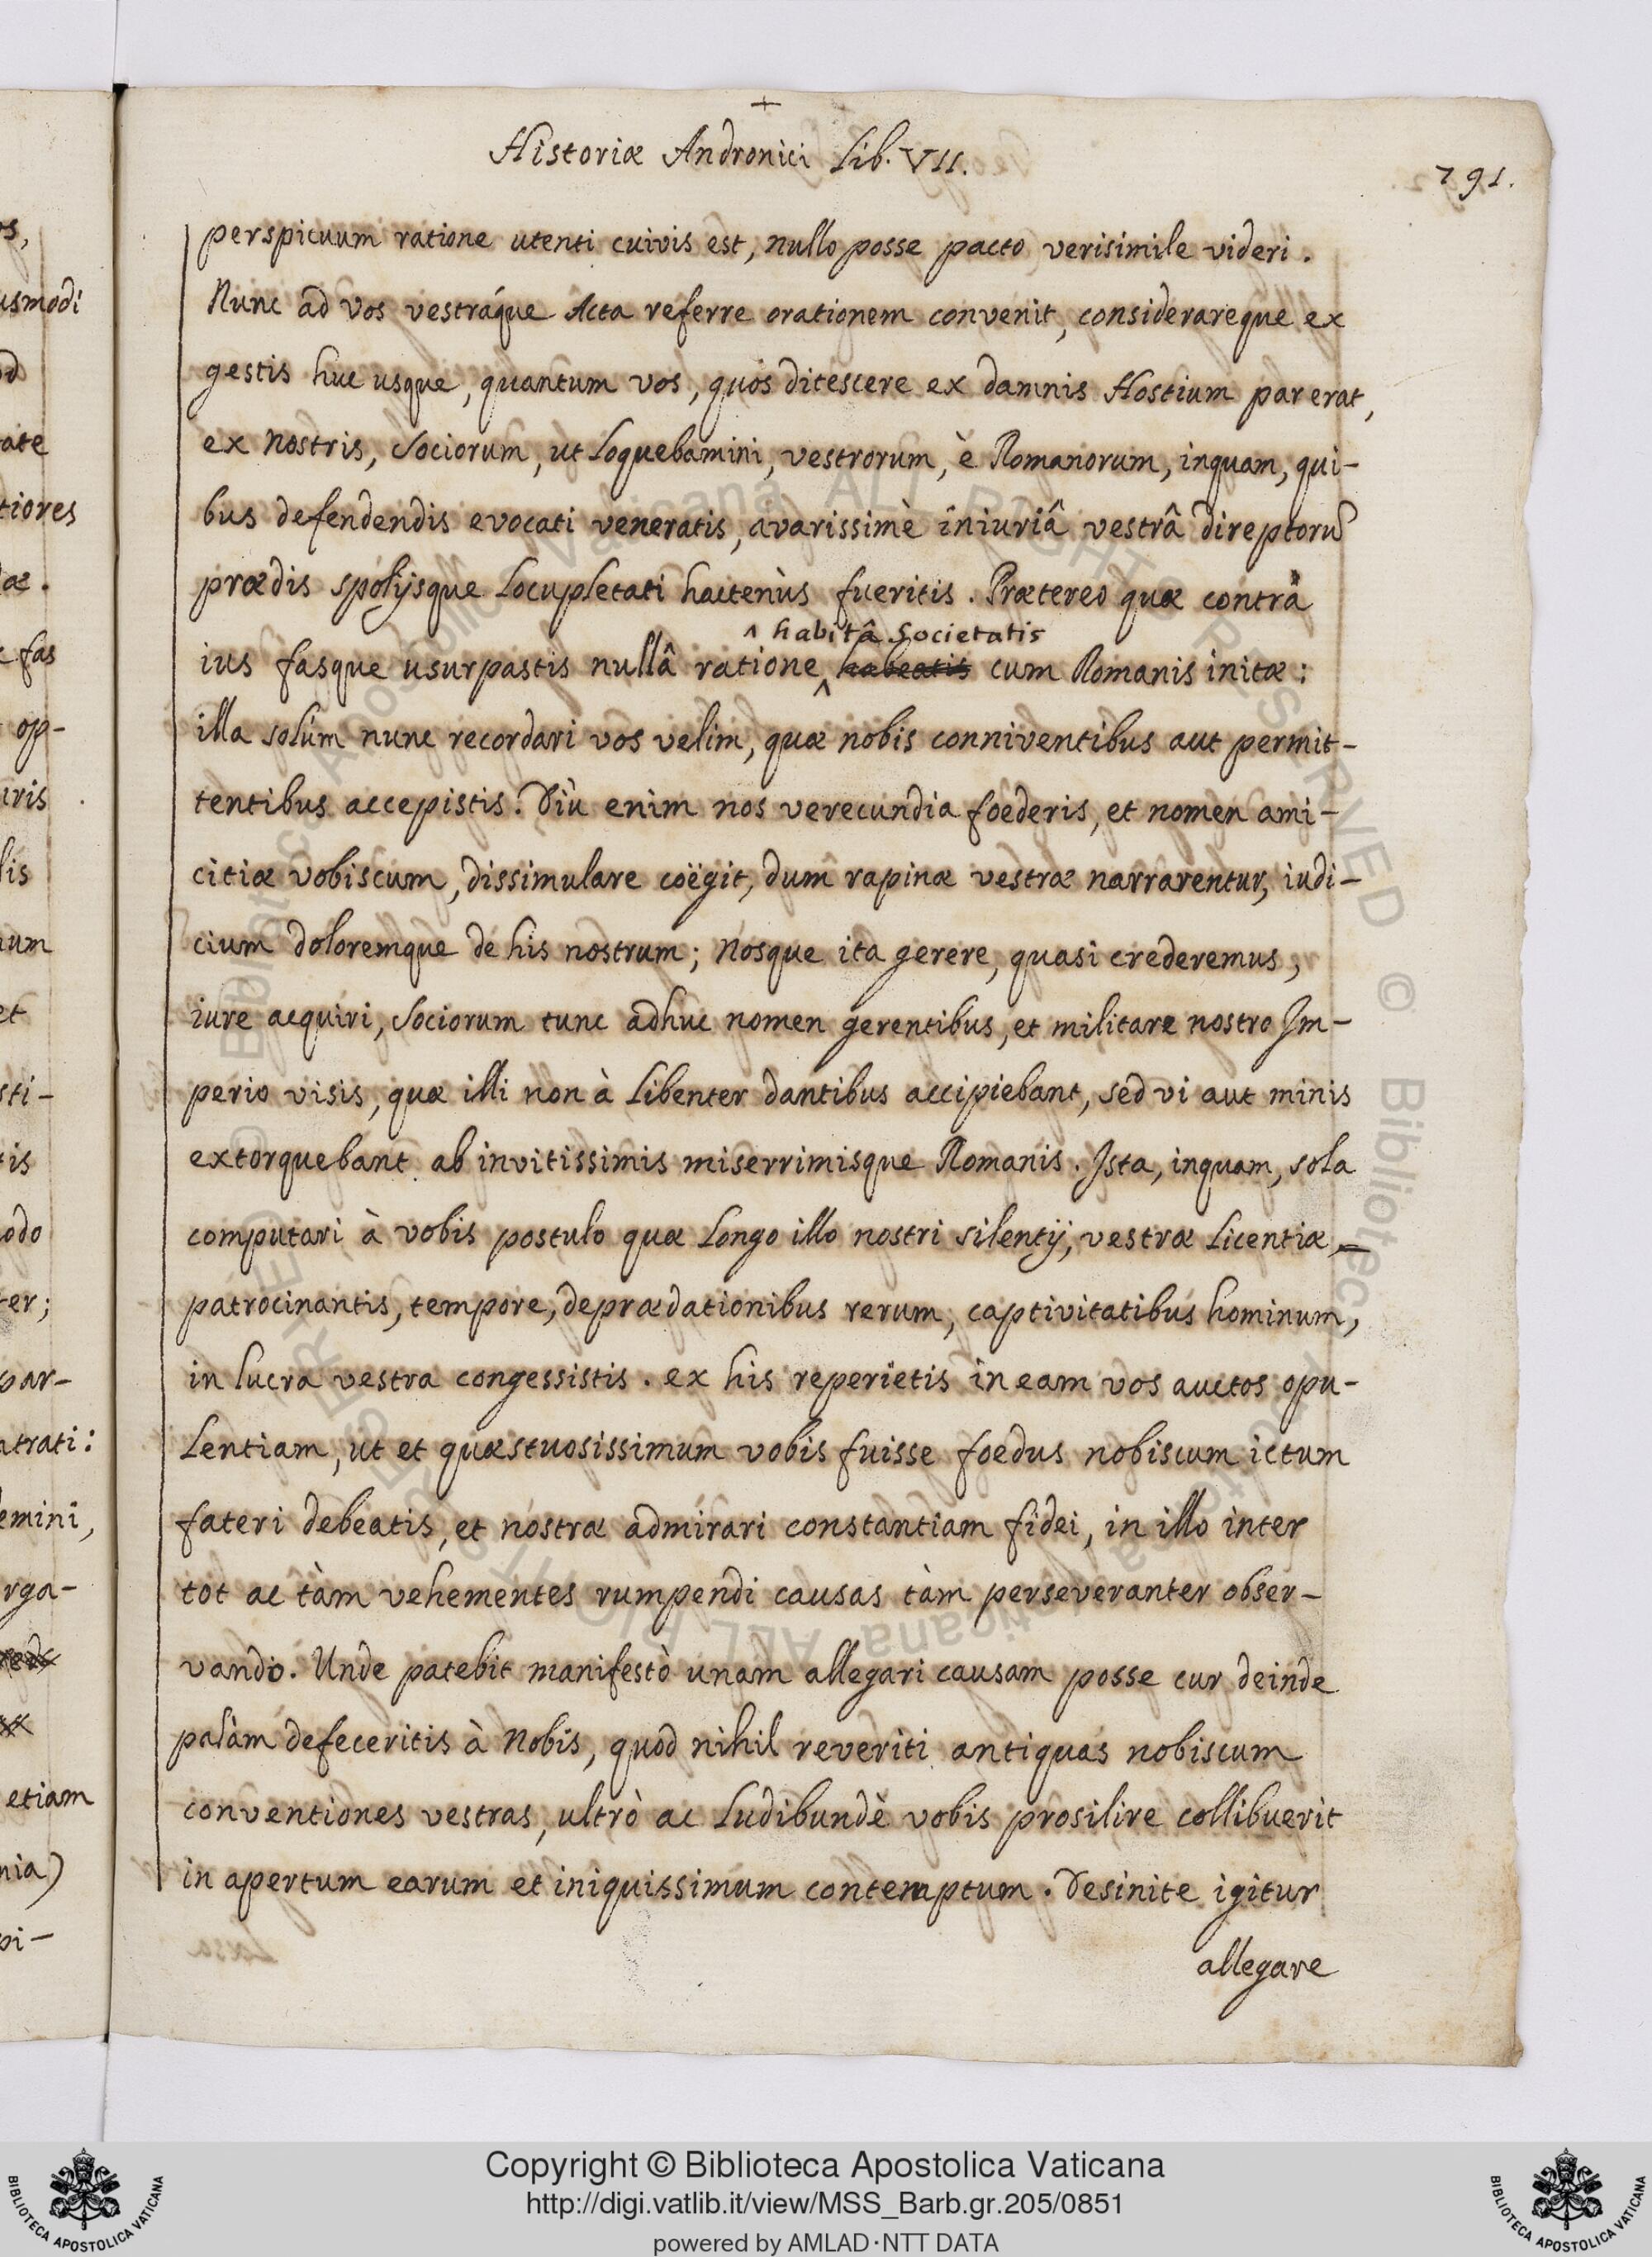 +
Historiæ Andronici Lib. VII.
791.
perspicuum ratione utenti cuivis est, nullo posse pacto verisimile videri.
Nunc ad vos vestráque Acta referre orationem convenit, considerareque ex
gestis huc usque, quantum vos, quos ditescere ex damnis Hostium par erat,
ex nostris, Sociorum, ut Loquebamini, vestrorum, è Romanorum, inquam, qui-
bus defendendis evocati veneratis, avarissimè iniuriâ vestrâ direptorũ
prædis spolijsque Locupletati hactenùs fueritis. Prætereo quæ contrà
^ habitâ Societatis
ius fasque usurpastis nullâ ratione ^ habeatis cum Romanis initæ:
illa solùm nunc recordari vos velim, quæ nobis conniventibus aut permit-
tentibus accepistis. Diù enim nos verecundia foederis, et nomen ami-
citiæ vobiscum, dissimulare coëgit, dum rapinæ vestræ narrarentur, iudi-
cium doloremque de his nostrum; Nosque ita gerere, quasi crederemus,
iure acquiri, Sociorum tunc adhuc nomen gerentibus, et militare nostro Im-
perio visis, quæ illi non à Libenter dantibus accipiebant, sed vi aut minis
extorquebant ab invitissimis miserrimisque Romanis. Ista, inquam, sola
computari à vobis postulo quæ Longo illo nostri silentij, vestræ Licentiæ
patrocinantis, tempore, deprædationibus rerum, captivitatibus hominum,
in lucra vestra congessistis. ex his reperietis in eam vos auctos opu-
Lentiam, ut et quæstuosissimum vobis fuisse foedus nobiscum ictum
fateri debeatis, et nostræ admirari constantiam fidei, in illo inter
tot ac tàm vehementes rumpendi causas tàm perseveranter obser-
vando. Unde patebit manifestò unam allegari causam posse cur deinde
palàm defeceritis à Nobis, quod nihil reveriti antiquas nobiscum
conventiones vestras, ultrò ac Ludibundè vobis prosilire collibuerit
in apertum earum et iniquissimum contemptum. Desinite igitur
allegare
Copyright © Biblioteca Apostolica Vaticana
http://digi.vatlib.it/view/MSS_Barb.gr.205/0851
powered by AMLAD·NTT DATA
BIBLIOTECA APOSTOLICA VATICANA
BIBLIOTECA APOSTOLICA VATICANA